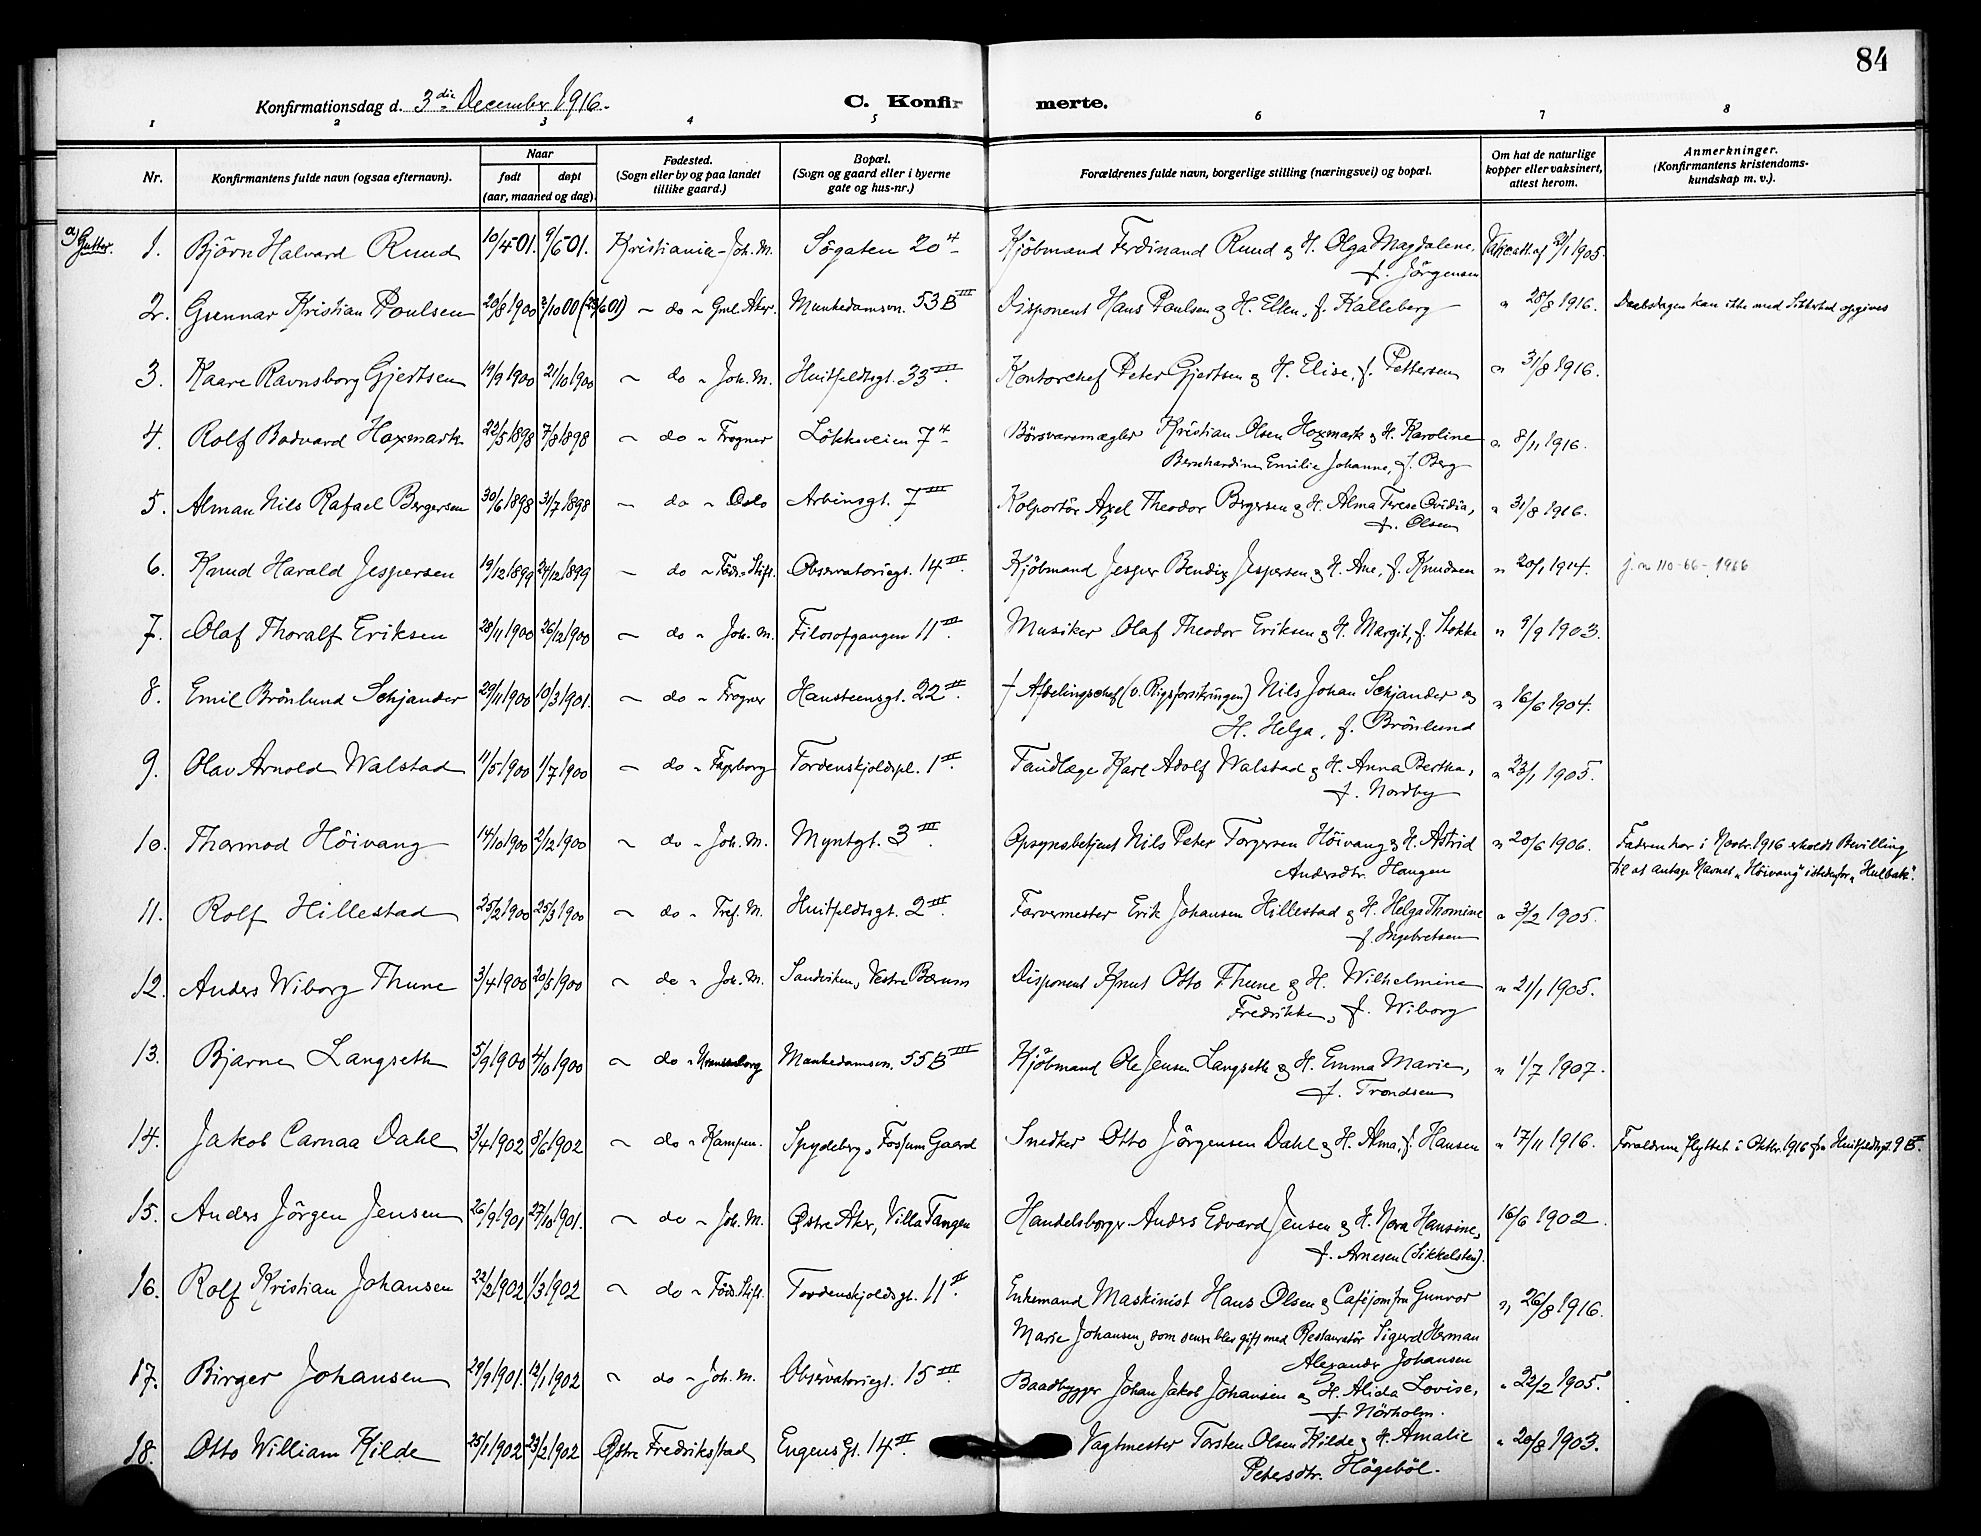 84
Konfirmationsdag d. 3die December 1916.
C. Konfirmerte.
1 2 3 4 5 6 7 8
Nr. Konfirmantens fulde navn (ogsaa efternavn). Naar født døpt (aar, maaned og dag). Fødested. (Sogn eller by og paa landet tillike gaard.) Bopæl. (Sogn og gaard eller i byerne gate og hus-nr.) Forældrenes fulde navn, borgerlige stilling (næringsvei) og bopæl. Om hat de naturlige kopper eller vaksinert, attest herom. Anmerkninger. (Konfirmantens kristendoms-kundskap m. v.).
a) Gutter. 1. Björn Halvard Ruud 10/4-01. 9/6-01. Kristiania - Joh. M. Sögaten 20 4 Kjöbmand Ferdinand Ruud og H. Olga Magdalene, 1905.
f. Jörgensen
2. Gunnar Kristian Poulsen 20/8 1900 3/10 00 (23/6 01) - do - Gml. Aker. Munkedamsvn. 53 B III Disponent Hans Poulsen og H. Ellen, f. Kalleberg " 28/8 1916. Daabsdagen kan ikke med Sikkerhed opgives
3. Kaare Ravnsborg Gjertsen 19/9 1900 21/10 1900 - do - Joh. M. Huitfeldtsgt. 33 III. Kontorchef Peter Gjertsen og H. Elise, f. Pettersen " 31/8 1916.
4. Rolf Bodvard Haxmark 22/5 1898 7/8 1898 - do - Frogner Lökkeveien 7 4 Börsvaremægler Kristian Olsen Hoxmark og H. Karoline " 8/11 1916.
Bernhardine Emilie Johanne, f. Berg
5. Alman Nils Rafael Bergersen 30/6 1898 31/7 1898 - do - Oslo Arbinsgt. 7 III Kolportör Axel Theodor Bergersen og H. Alma Terese Ovidia, " 31/8 1916.
f. Olsen
6. Knud Harald Jespersen 19/12 1899 24/12 1899 - do - Föds. Stift. Observatoriegt. 14 III. Kjöbmand Jesper Bendix Jespersen og H. Ane, f. Knudsen " 20/1 1914. j. n. 110-66-1966
7. Olaf Thoralf Eriksen 28/11 1900 26/12 1900 - do - Joh. M. Filosofgangen 11 III. Musiker Olaf Theodor Eriksen og H. Margit, f. Stokke " 9/9 1903.
8. Emil Brönlund Schjander 29/11 1900 10/3 1901. - do - Frogner Hansteensgt. 22 II. † Afdelingschef (v. Rigsforsikringen) Nils Johan Schjander og " 16/6 1904.
H. Helga, f. Brönlund
9. Olav Arnold Walstad 11/5 1900 1/7 1900 - do - Fagerborg Tordenskjoldspl. 1 II. Tandlæge Karl Adolf Walstad og H. Anna Bertha, " 23/1 1905.
f. Nordby
10. Thormod Höivang 14/10 1900 2/12 1900 - do - Joh. M. Myntgt. 3 III. Opsynsbetjent Nils Peter Torgersen Höivang og H. Astrid " 20/6 1906. Faderen har i Novbr. 1916 erholdt Bevilling
Andersdtr. Haugen til at antage Navnet "Höivang" istedenfor "Hulbak".
11. Rolf Hillestad 25/2 1900 25/3 1900 - do - Tref. M. Huitfeldtsgt. 2 III. Farvermester Erik Johansen Hillestad og H. Helga Thomine " 3/2 1905.
f. Ingebretsen
12. Anders Wiborg Thune 3/4 1900 20/5 1900 - do - Joh. M. Sandviken, Vestre Bærum Disponent Knut Otto Thune og H. Wilhelmine " 21/1 1905.
Fredrikke, f. Wiborg
13. Bjarne Langseth 5/9 1900 4/10 1900 - do - Munkedamsvn. 55 B III Kjöbmand Ole Jensen Langseth og H. Emma Marie, " 1/7 1907.
f. Trondsen
14. Jakob Carnaa Dahl 3/4 1902 8/6 1902 - do - Kampen. Spydeberg, Fossum Gaard Snedker Otto Jörgensen Dahl og H. Alma, f. Hansen " 17/11 1916. Forældrene flyttet i Oktbr. 1916 fra Huitfeldtsgt. 9 B.
15. Anders Jörgen Jensen 26/9 1901 27/10 1901. - do - Joh. M. Østre Aker, Villa Tangen Handelsborger Anders Edvard Jensen og H. Nora Hansine, 16/6 1902.
f. Arnesen (Sikkelsten).
16. Rolf Kristian Johansen 22/2 1902 1/3 1902 - do - Föds. Stift. Tordenskjoldsgt. 11 II. Enkemand Maskinist Hans Olsen og Caféjomfru Gunvor " 26/8 1916.
Marie Johansen, som senere blev gift med Restauratör Sigurd Herman
Alexander Johansen
17. Birger Johansen 29/9 1901. 12/1 1902 - do - Joh. M. Observatoriegt. 15 III. Baadbygger Johan Jakob Johansen og H. Alida Lovise, " 22/2 1905.
f. Nörholm.
18. Otto William Kilde 25/1 1902 23/2 1902 Østre Fredriksstad Eugens Gt. 14 II. Vagtmester Torsten Olsen Kilde og H. Amalie " 20/8 1903.
Petersdtr. Högeböl.